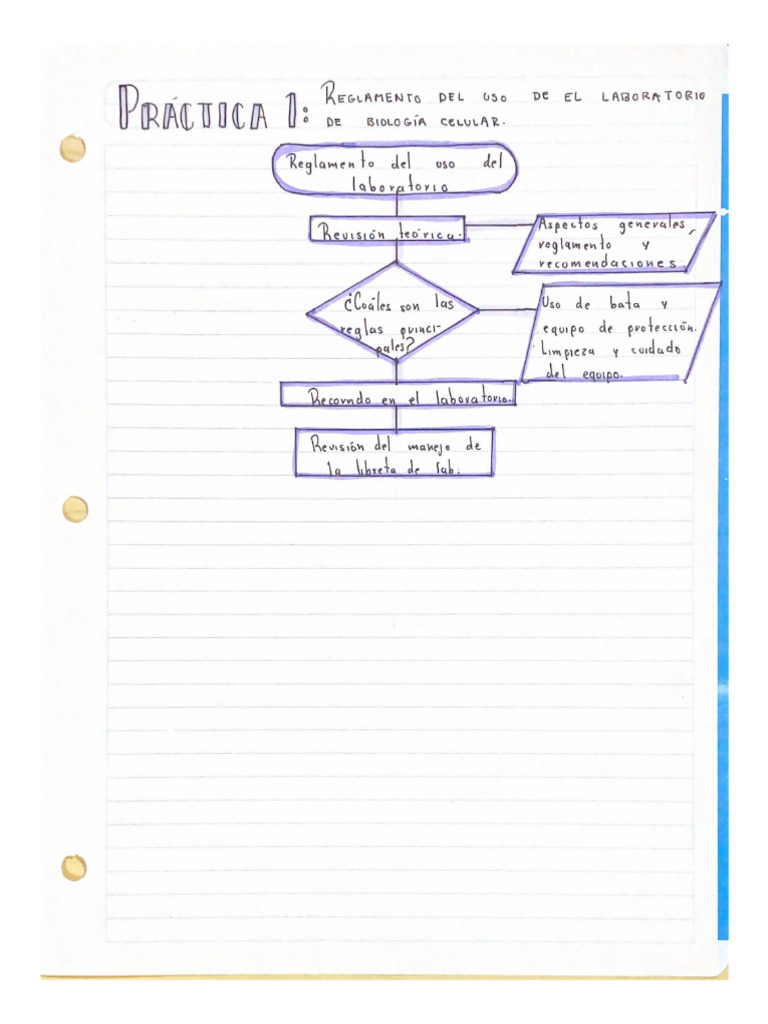 PRÁCTICA 1: REGLAMENTO DEL USO DE EL LABORATORIO
DE BIOLOGÍA CELULAR.
Reglamento del uso del
laboratorio
Revisión teórica.
Aspectos generales,
reglamento y
recomendaciones
¿Cuáles son las
reglas princi-
pales?
Uso de bata y
equipo de protección.
Limpieza y cuidado
del equipo.
Recorrido en el laboratorio.
Revisión del manejo de
la libreta de lab.